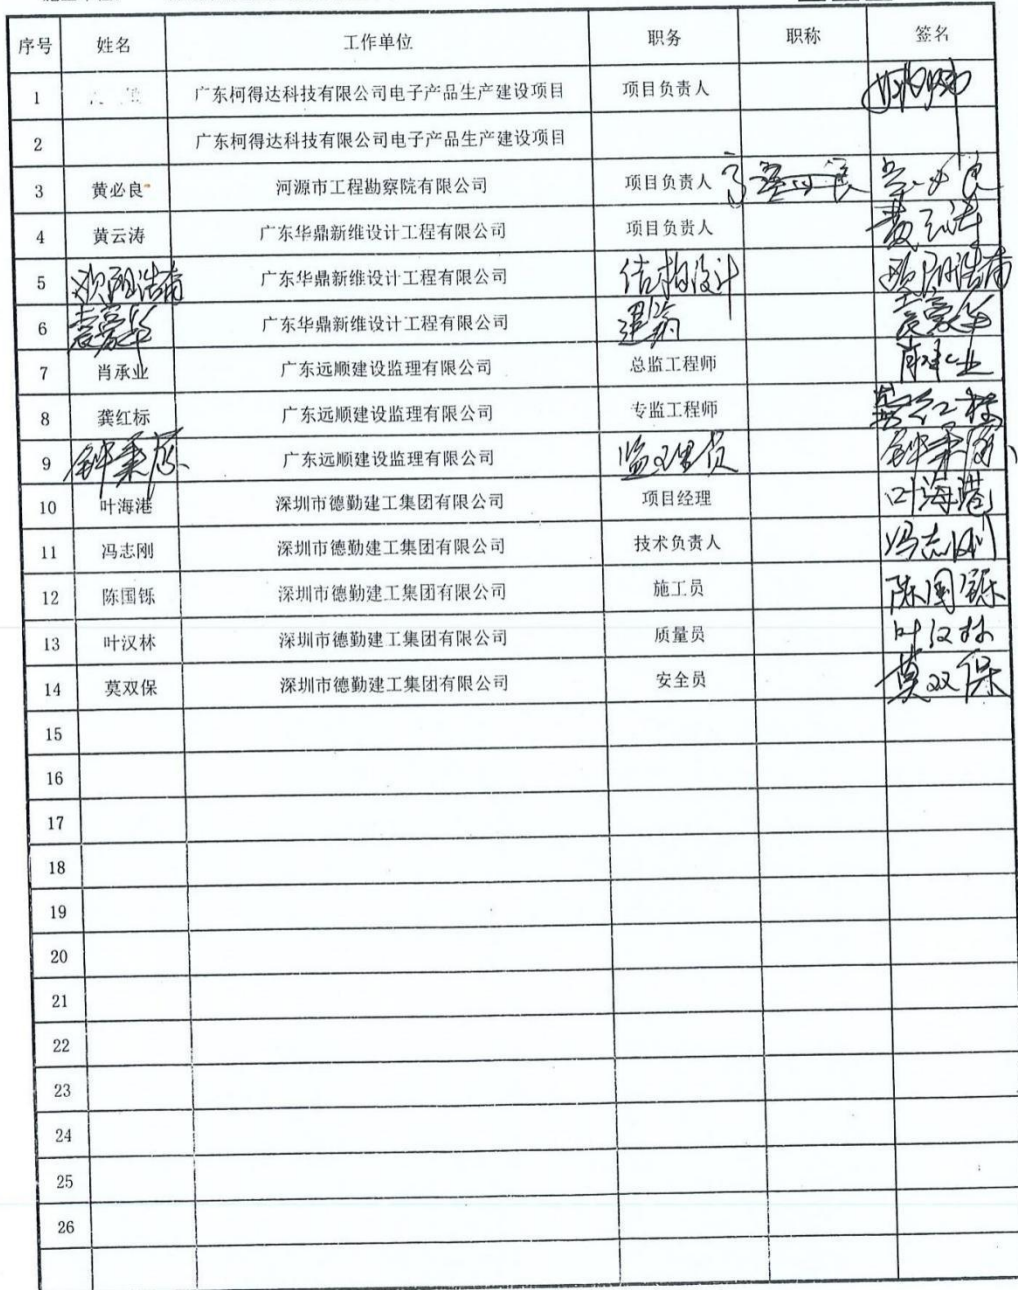 序号 姓名 工作单位 职务 职称 签名
1 广东柯得达科技有限公司电子产品生产建设项目 项目负责人
2 广东柯得达科技有限公司电子产品生产建设项目
3 黄必良 河源市工程勘察院有限公司 项目负责人
4 黄云涛 广东华鼎新维设计工程有限公司 项目负责人 黄云涛
5 广东华鼎新维设计工程有限公司 结构设计
6 广东华鼎新维设计工程有限公司 建筑
7 肖承业 广东远顺建设监理有限公司 总监工程师 肖承业
8 龚红标 广东远顺建设监理有限公司 专监工程师 龚红标
9 广东远顺建设监理有限公司 监理员
10 叶海港 深圳市德勤建工集团有限公司 项目经理 叶海港
11 冯志刚 深圳市德勤建工集团有限公司 技术负责人 冯志刚
12 陈国铄 深圳市德勤建工集团有限公司 施工员 陈国铄
13 叶汉林 深圳市德勤建工集团有限公司 质量员 叶汉林
14 莫双保 深圳市德勤建工集团有限公司 安全员 莫双保
15
16
17
18
19
20
21
22
23
24
25
26